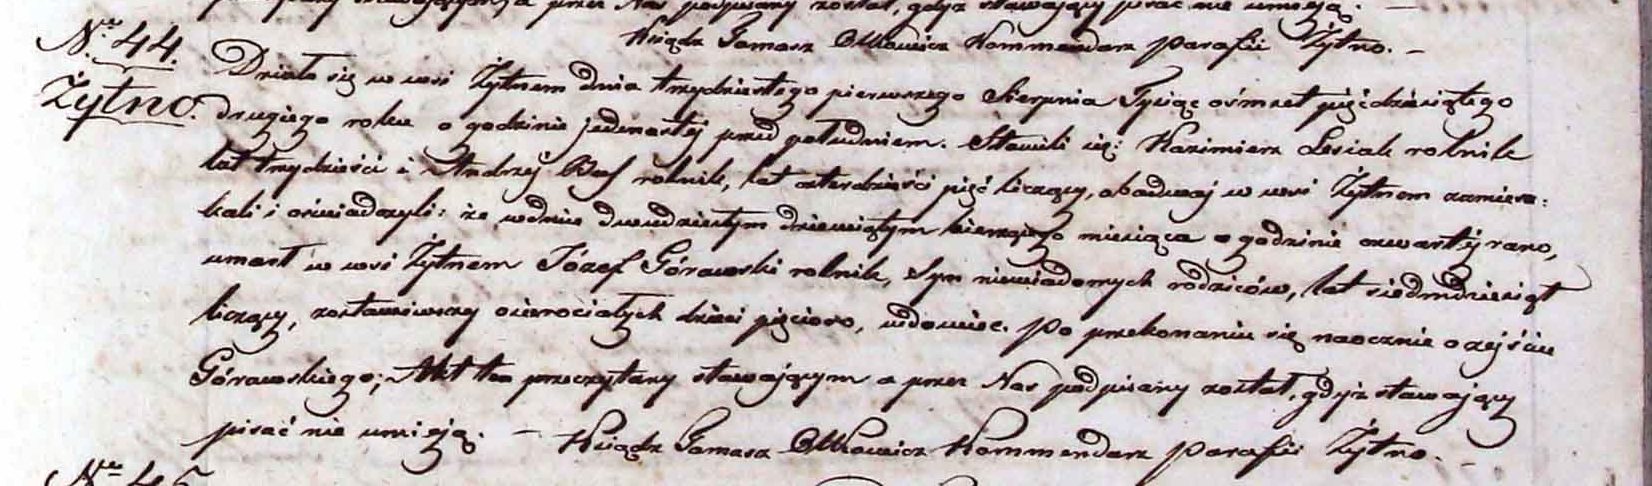 przez Nas podpisany został, gdyż stawający pisać nie umieją. —
Ksiądz Tomasz Kommendarz Parafii Żytno. —
Nro 44.
Żytno.
Działo się w wsi Żytnem dnia trzydziestego pierwszego Sierpnia Tysiąc ośmset pięćdziesiątego
drugiego roku o godzinie jedenastej przed południem. Stawili się: Kazimierz Lesiak rolnik
lat trzydzieści i Andrzej rolnik, lat czterdzieści pięć liczący, obadwaj w wsi Żytnem zamiesz:
kali i oświadczyli: że w dniu dwudziestym dziewiątym bieżącego miesiąca o godzinie czwartej rano,
umarł w wsi Żytnem Józef Górawski rolnik, Syn niewiadomych rodziców, lat siedmdziesiąt
liczący, zostawiwszy osierociałych dzieci pięcioro, wdowiec. Po przekonaniu się naocznie o zejściu
Górawskiego; Akt ten przeczytany stawającym a przez Nas podpisany został, gdyż stawający
pisać nie umieją. — Ksiądz Tomasz Kommendarz Parafii Żytno. —
Nro 45